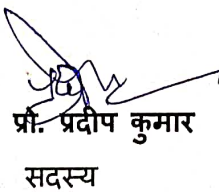 प्रो. प्रदीप कुमार
सदस्य